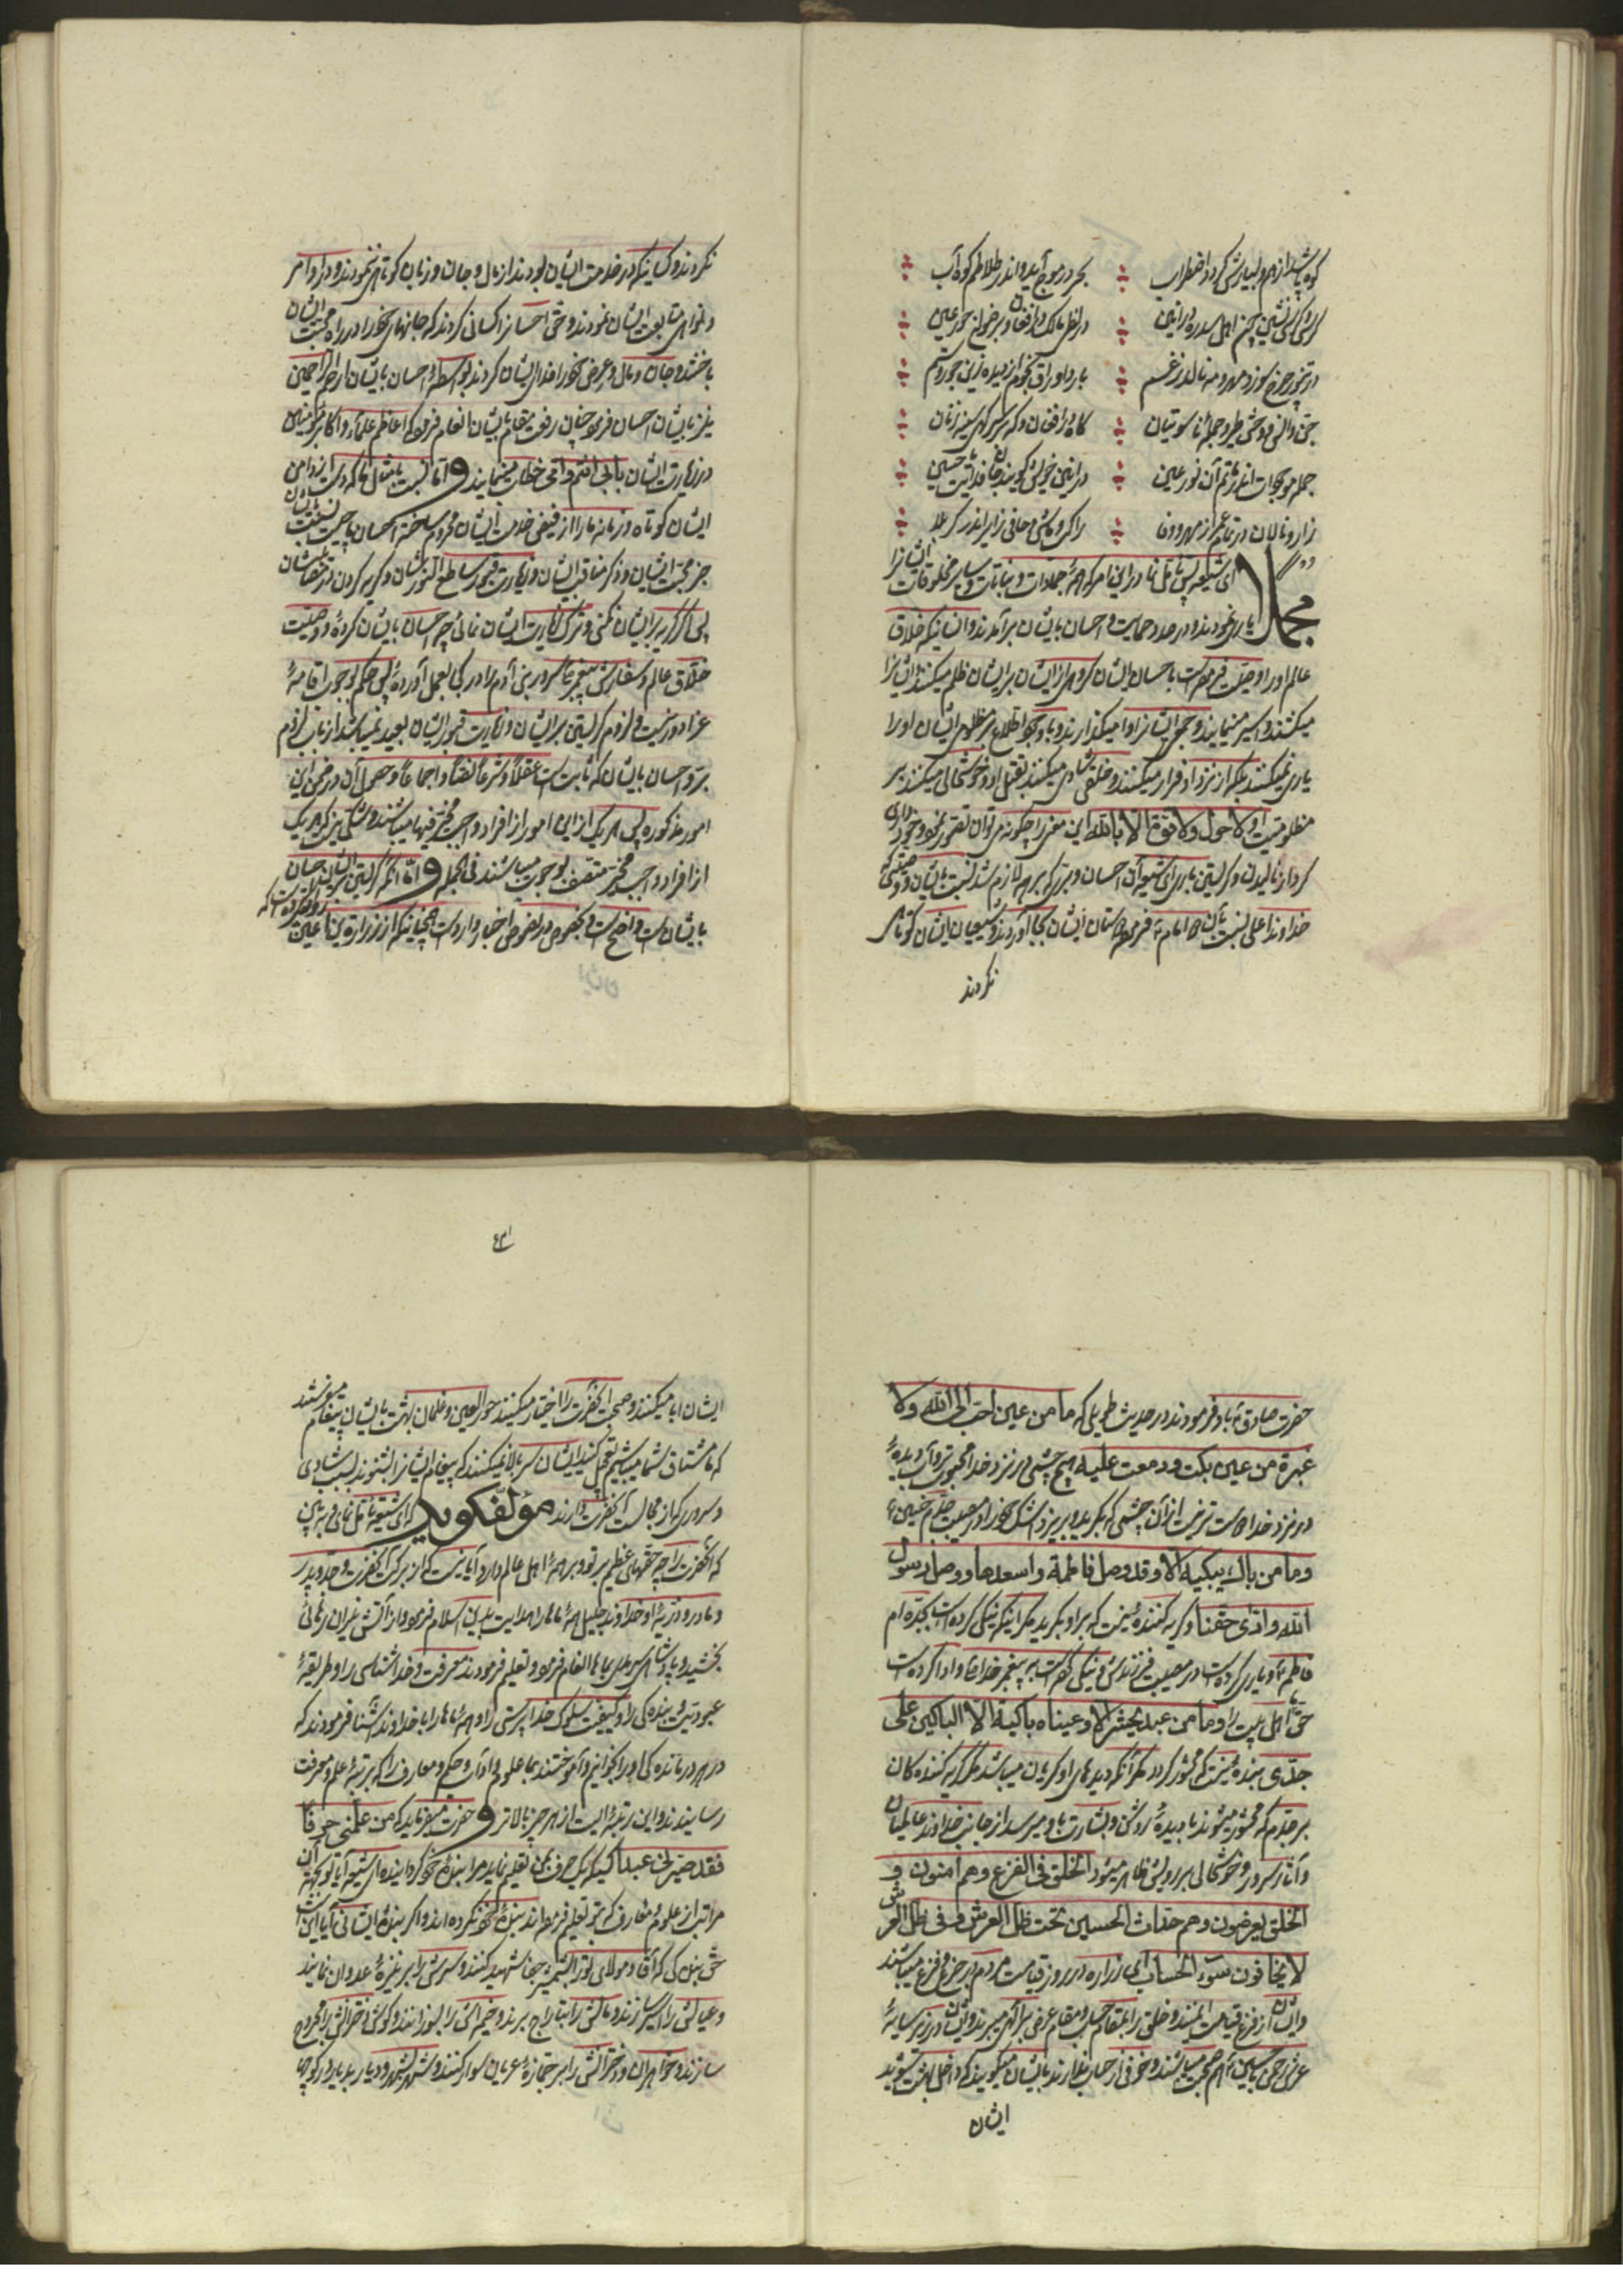 بحر در موج آید و اندر طلاطم کوه آب
کرسی کرسی نشین چین اهل سدره در انین
در تنور چرخ سوزد مهر و مه نالد ز غم
بارد اوراق نجوم از دیده زین جور و ستم
جن و انس و وحش و طیر و جمله ناسوتیان
جمله موجودات اندر ماتم آن نور عین
زار و نالان در تمام عمر از مهر و وفا
مجملا ای شیعه پس تامل نما در این امر که همه جمادات و نباتات و سایر مخلوقات ایشان را
یاری نمودند و در صدد حمایت و احسان بایشان برآمدند و انسانیکه خلاق
عالم او را وصیت فرموده است با احسان ایشان گروهی از ایشان بر ایشان ظلم میکنند و ایشان را
میکشند و اسیر مینمایند و جمعی ایشان را وا میگذارند و با وجود اطلاع بر مظلومی ایشان او را
یاری نمیکنند بلکه از نزد او فرار میکنند و خلقی شادی میکنند بقتل او و خوشحالی میکنند بر
مظلومیت او لا حول ولا قوة الا بالله این معنی را چگونه میتوان تصور نمود و خودداری
کرد از نالیدن و گریستن بلی ای شیعه آن احسان و بری که بر همه لازم شد نسبت بایشان و وصیتی که
خداوند اعلی نسبت بآن امام فرموده دوستان ایشان بجا آوردند و شیعیان ایشان کوتاهی
نکردند
نکردند و کسانیکه در خدمت ایشان بودند از مال و جان و زبان کوتاهی ننمودند و در اوامر
و نواهی متابعت ایشان نمودند و حتی احسان کسانی کردند که جانهای خود را در راه محبت ایشان
باختند و جان و مال و عرض خود را فدای ایشان کردند بواسطه احسان بایشان ارحم الراحمین
نیز بایشان احسان فرمود چنان رفعت مقام بایشان انعام فرمود که اعاظم علماء و اکابر مؤمنین
در زیارت ایشان بابی انتم و امی خطاب مینمایند و اما نسبت بامثال ما که دست ما از دامن
ایشان کوتاه و زمانه ما را از فیض خدمت ایشان محروم ساخته احسان باین نسبت بایشان
جز محبت ایشان و ذکر مناقب ایشان و زیارت قبور ساطع النورشان و گریه کردن در مصیبتشان
پس اگر گریه بر ایشان نکنی و ترک زیارت ایشان نمائی چه احسان بایشان کرده و وصیت
خلاق عالم و سفارش پیغمبر را در کجا بعمل آورده پس حکم بوجوب اقامه
عزا و وجوب و لزوم گریستن بر ایشان و زیارت قبور ایشان بعید نمیباشد از باب لزوم
بر و احسان بایشان که ثابت است عقلا و شرعا کتابا و اجماعا و حصول آن در ضمن این
امور مذکوره پس هر یک از این امور از افراد واجب مخیر فیها میباشند و شکی نیست که هر یک
از افراد واجب مخیر متصف بوجوب میباشند فی الجمله و اما آنکه گریستن بر ایشان احسان
بایشان است واضح است و بخصوص در بعضی اخبار وارد است چنانچه از زراره بن اعین روایت کرده است که
حضرت صادق باو فرمودند در حدیث طویلی که ما من عین احب الی الله ولا
عبرة من عین بکت و دمعت علیه هیچ چشمی در نزد خدا محبوبتر و آب دیده
در نزد خدا دوست تر نیست از آن چشمی که بگرید و بریزد اشک خود را در مصیبت جدم حسین
وما من باک یبکیه الا وقد وصل فاطمة واسعدها ووصل رسول
الله وادی حقنا و گریه کننده نیست که بر او بگرید مگر اینکه نیکی کرده است بجده ام
فاطمه و یاری کرده است در مصیبت فرزندش و نیکی کرده است به پیغمبر خدا و ادا کرده است
حق ما اهل بیت را وما من عبد یحشر الا وعیناه باکیة الا الباکین علی
جدی بنده نیست که محشور گردد مگر آنکه دیدهای او گریان میباشد مگر گریه کننده کان
بر جدم که محشور میشوند با دیده روشن و بشارت باو میرسد از جانب خداوند عالمیان
و آثار سرور و خوشحالی بر رویش ظاهر میشود الخلق فی الفزع وهم آمنون و
الخلق یعرضون وهم حداث الحسین تحت ظل العرش وفی ظل العرش
لا یخافون سوء الحساب ای زراره در روز قیامت مردم در جزع و فزع میباشند
و ایشان از فزع قیامت ایمنند و خلق را بمقام حساب و مقام عرض اکبر میبرند و ایشان در زیر سایه
عرش رحمن با حسین هم صحبت میباشند و خوفی از حساب ندارند بایشان میگویند که داخل بهشت شوید
ایشان
۴۳۱
ایشان ابا میکنند و صحبت آنحضرت را اختیار میکنند حور العین و غلمان بهشت بایشان پیغام میفرستند
که ما مشتاق شما میباشیم تعجیل کنید ایشان سر بالا نمیکنند که پیغام ایشان را بشنوند بسبب شادی
و سروری که از مجالست آنحضرت دارند مؤلف گوید که ای شیعه تامل نمای و ببین
که آنحضرت را چه حقهای عظیم بر تو و بر همه اهل عالم دارد آیا نیست که از برکت آنحضرت و جد و پدر
و مادر و ذریه او خداوند جلیل همه ماها را هدایت بدین اسلام فرمود و از آتش نیران رهائی
بخشید و پادشاهی سرمدی بماها انعام فرمود و تعلیم فرمودند معرفت و خداشناسی را و طریقه
عبودیت و بنده گی را و کیفیت سلوک خداپرستی را و همه ماها را با خداوند آشنا فرمودند که
در هر درمانده گی او را بخوانیم و آموختند بما علوم و آداب و حکم و معارف را که برتبه علم و معرفت
رسانیدند و این رتبه ایست از هر چیز بالاتر و حضرت میفرماید که من علمنی حرفا
فقد صیرنی عبدا کسیکه یک حرف بمن تعلیم نماید مرا بنده خود گردانیده ای شیعه آیا تو بجهة آن
مراتب از علوم و معارف که بتو تعلیم فرموده اند بنده خود نکرده اند و اگر بنده ایشانی آیا این است
حق بنده گی که آقا و مولای تو را لب تشنه بجفا شهید کنند و سرش را بر نیزه عدوان نمایند
و عیالش را اسیر سازند و مالش را بتاراج برند و خیمه اش را بسوزانند و گوش دخترانش را مجروح
سازند و خواهران و دخترانش را بر جمازه عریان سوار کنند و شهر بشهر و دیار بدیار در کوچها